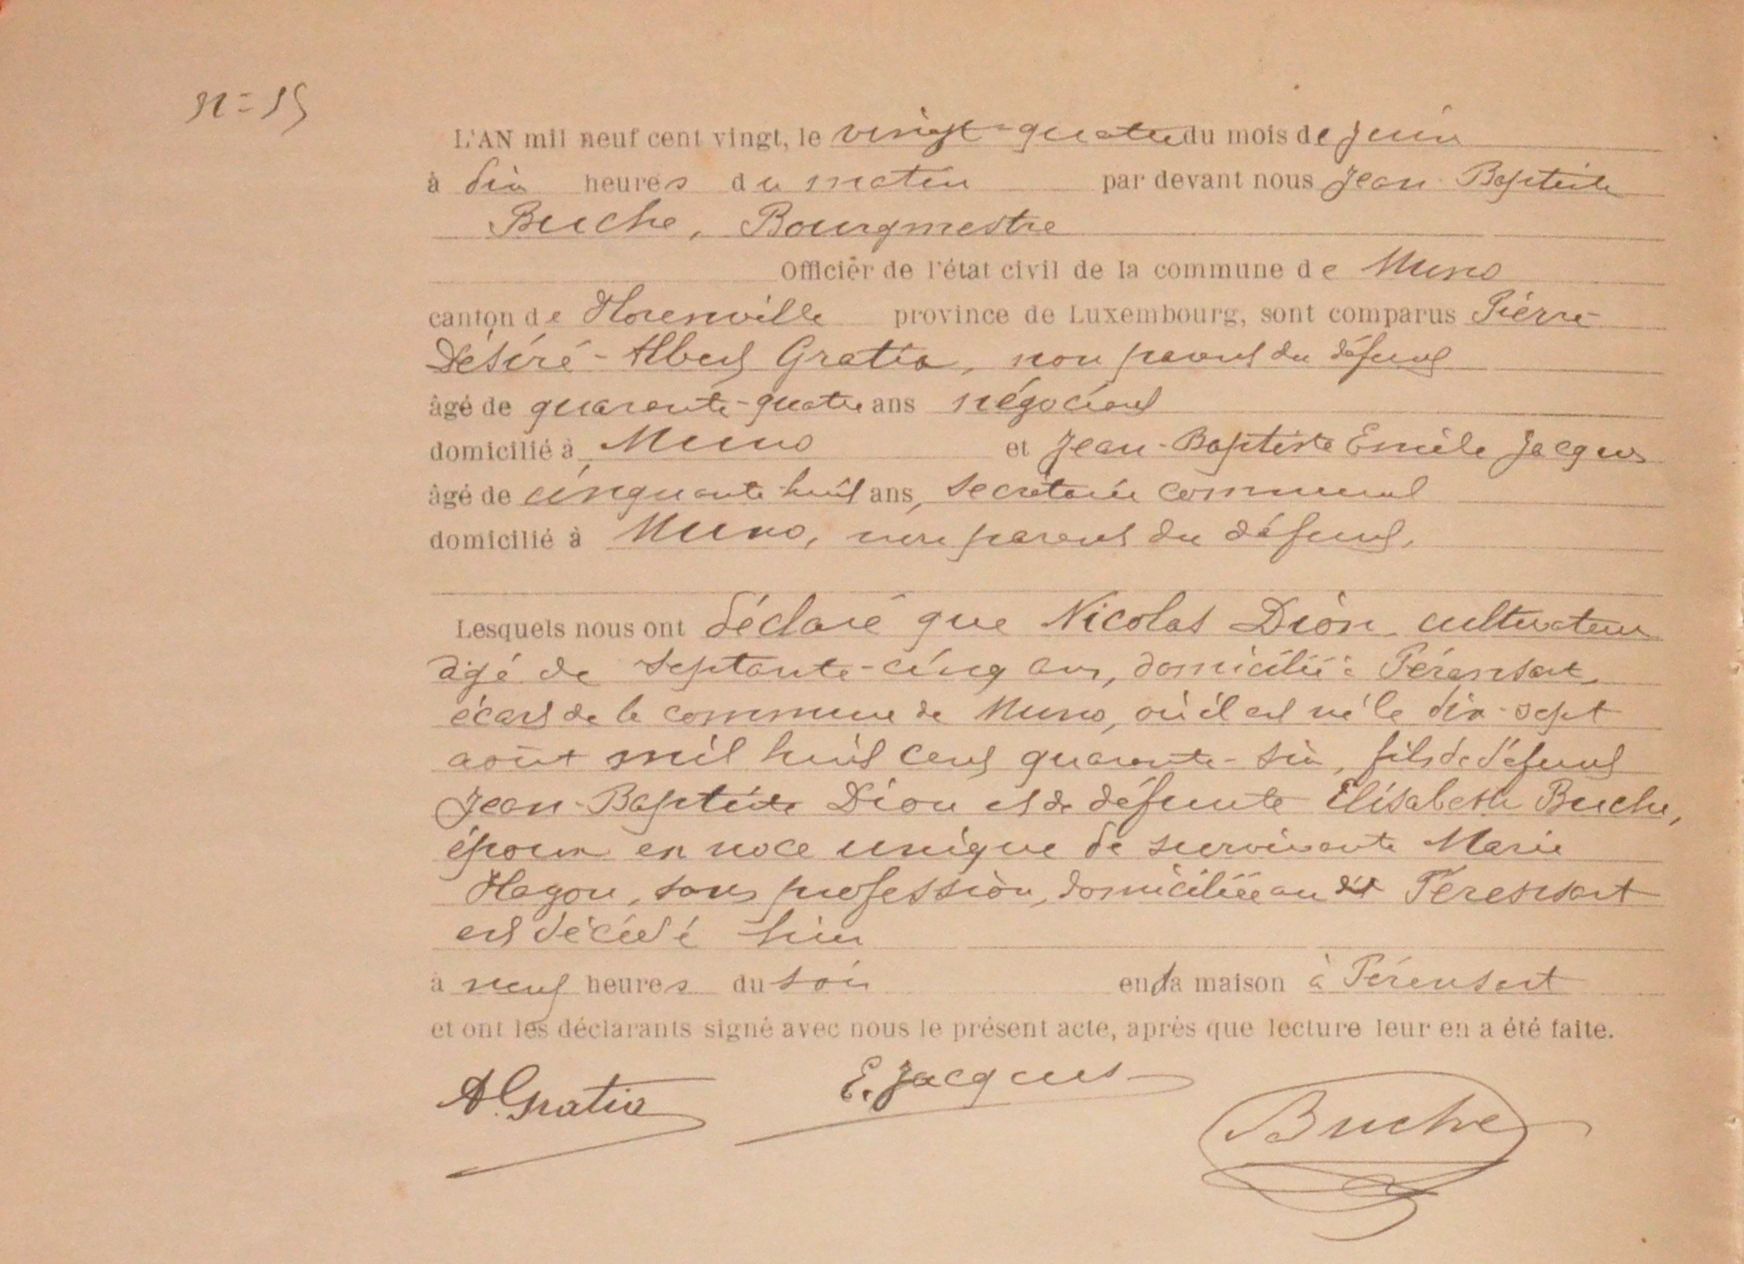 n= 15
L'AN mil neuf cent vingt, le vingt-quatre du mois de juin
à dix heures du matin par devant nous Jean Baptiste
Buche, Bourgmestre
Officier de l'état civil de la commune de Muno
canton de Florenville province de Luxembourg, sont comparus Pierre
Désiré-Albert Gratia, non parent du défunt
âgé de quarante-quatre ans négociant
domicilié à Muno et Jean-Baptiste Emile Jacques
âgé de cinquante huit ans, secrétaire communal
domicilié à Muno, non parent du défunt.
Lesquels nous ont déclaré que Nicolas Dion cultivateur
âgé de septante-cinq ans, domicilié à
écart de la commune de Muno, où il est né le dix-sept
août mil huit cent quarante-six, fils de défunt
Jean-Baptiste Dion et de défunte Elisabeth Buche,
époux en noce unique de survivante Marie
Hagon, sans profession, domiciliée au dit
est décédé hier
à neuf heures du soir en sa maison à
et ont les déclarants signé avec nous le présent acte, après que lecture leur en a été faite.
A. Gratia E. Jacques
Buche